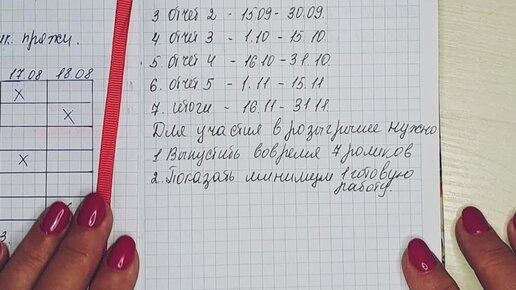 к. пряжи.
17.08 18.08
X
X
X
3.
3 отчет 2 - 15.09 - 30.09.
4. отчет 3 - 1.10 - 15.10.
5 отчет 4 - 16.10 - 31.10.
6. отчет 5 - 1.11 - 15.11
7. итоги - 16.11 - 31.11.
Для участия в розыгрыше нужно
1. Выпустить вовремя 7 роликов
2. Показать минимум 1 готовую
работу.